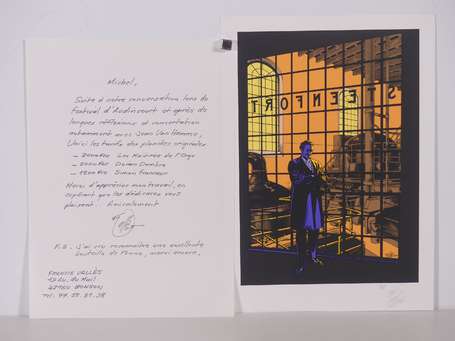 Michel,
Suite à notre conversation lors du
festival d'Audincourt et après de
longues réflexions et concertation
notamment avec Jean Van Hamme,
Voici les tarifs des planches originales
Les Maîtres de l'Orge
Dorian Dombre
Simon Francoeur
Merci d'apprécier mon travail, en
espérant que les dédicaces vous
plaisent. Amicalement
P.S. J'ai cru reconnaître une excellente
bouteille de Pomme, merci encore.
FRANCIS VALLÈS
Av. du Mail
STEENFORT